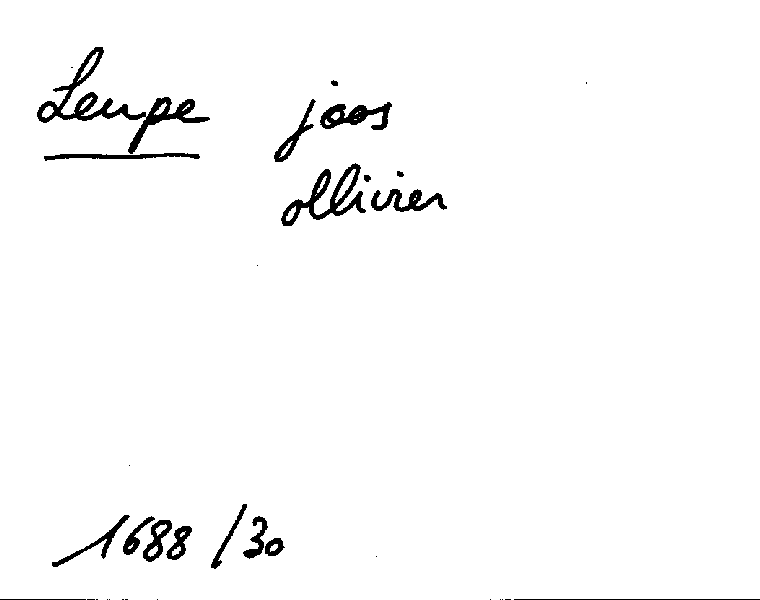 Leupe joos
ollivier
1688/30